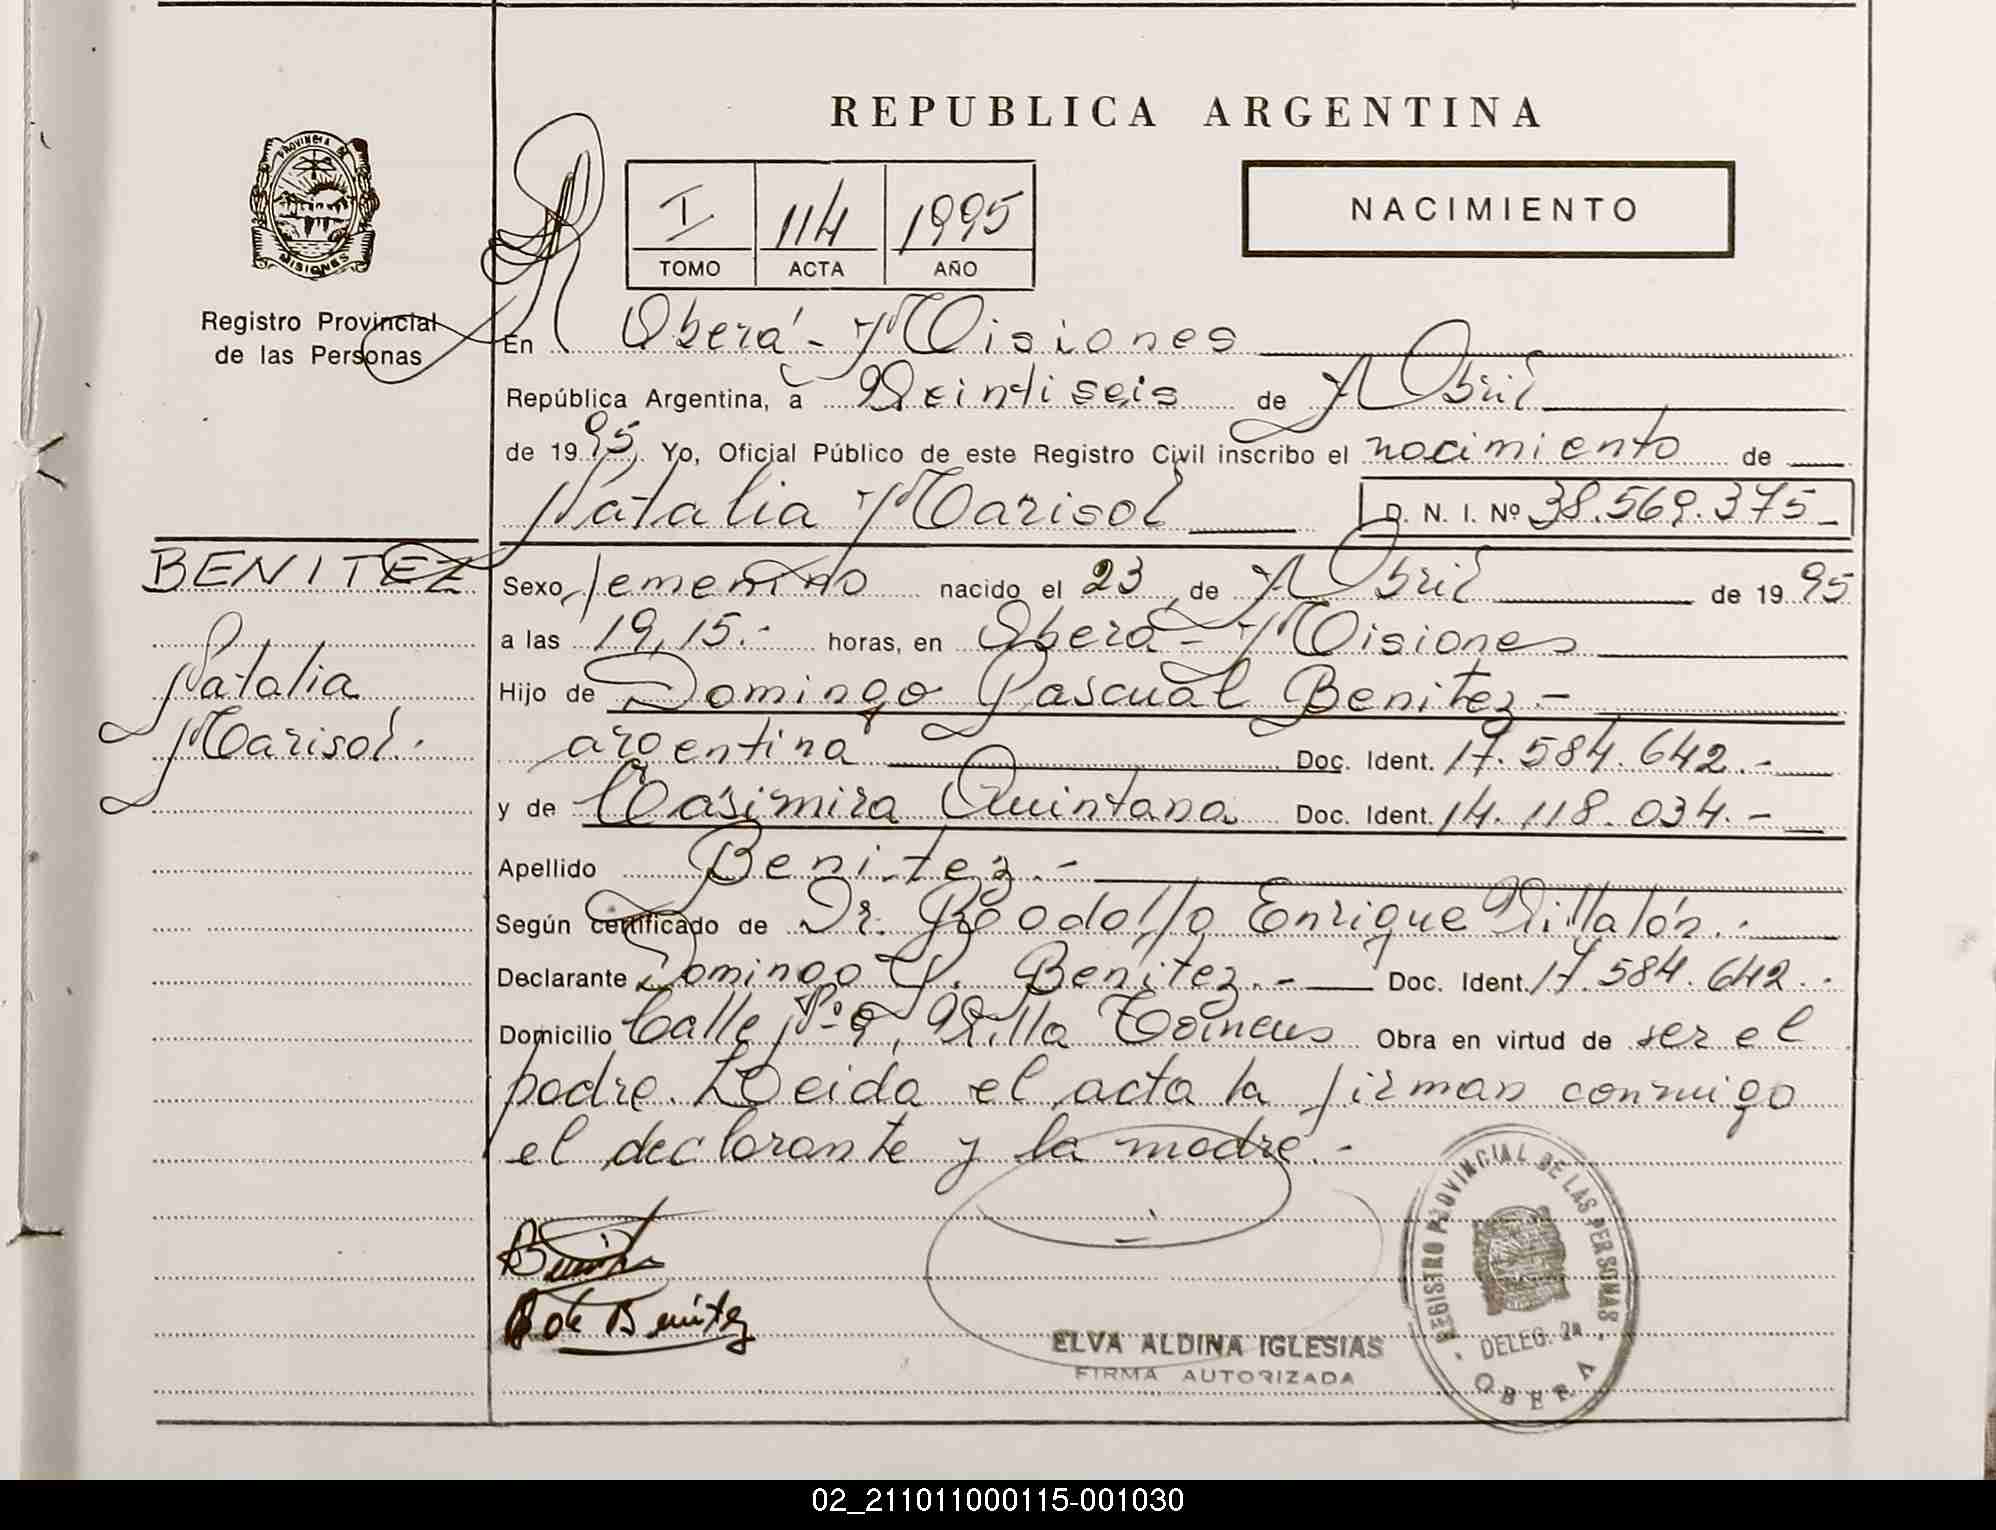 REPUBLICA ARGENTINA
PROVINCIA DE
MISIONES
Registro Provincial
de las Personas
I 114 1995
TOMO ACTA AÑO
NACIMIENTO
En Oberá - Misiones
República Argentina, a Veintiseis de Abril
de 1995 Yo, Oficial Público de este Registro Civil inscribo el nacimiento de
Natalia Marisol D. N. I. Nº 38.569.375-
BENITEZ
Natalia
Marisol.-
Sexo femenino nacido el 23 de Abril de 1995
a las 19,15.- horas, en Oberá - Misiones
Hijo de Domingo Pascual Benitez -
argentina Doc. Ident. 17.584.642.-
y de Casimira Quintana Doc. Ident. 14.118.034.-
Apellido Benitez.-
Según certificado de Dr. Rodolfo Enrique Villalón.-
Declarante Domingo P. Benitez.- Doc. Ident. 17.584.642.-
Domicilio Calle Nº 9, Villa Obra en virtud de ser el
padre. Leida el acta la firman conmigo
el declarante y la madre.-
de Benitez
ELVA ALDINA IGLESIAS
FIRMA AUTORIZADA
REGISTRO PROVINCIAL DE LAS PERSONAS
DELEG. 2a
OBERA
02_211011000115-001030